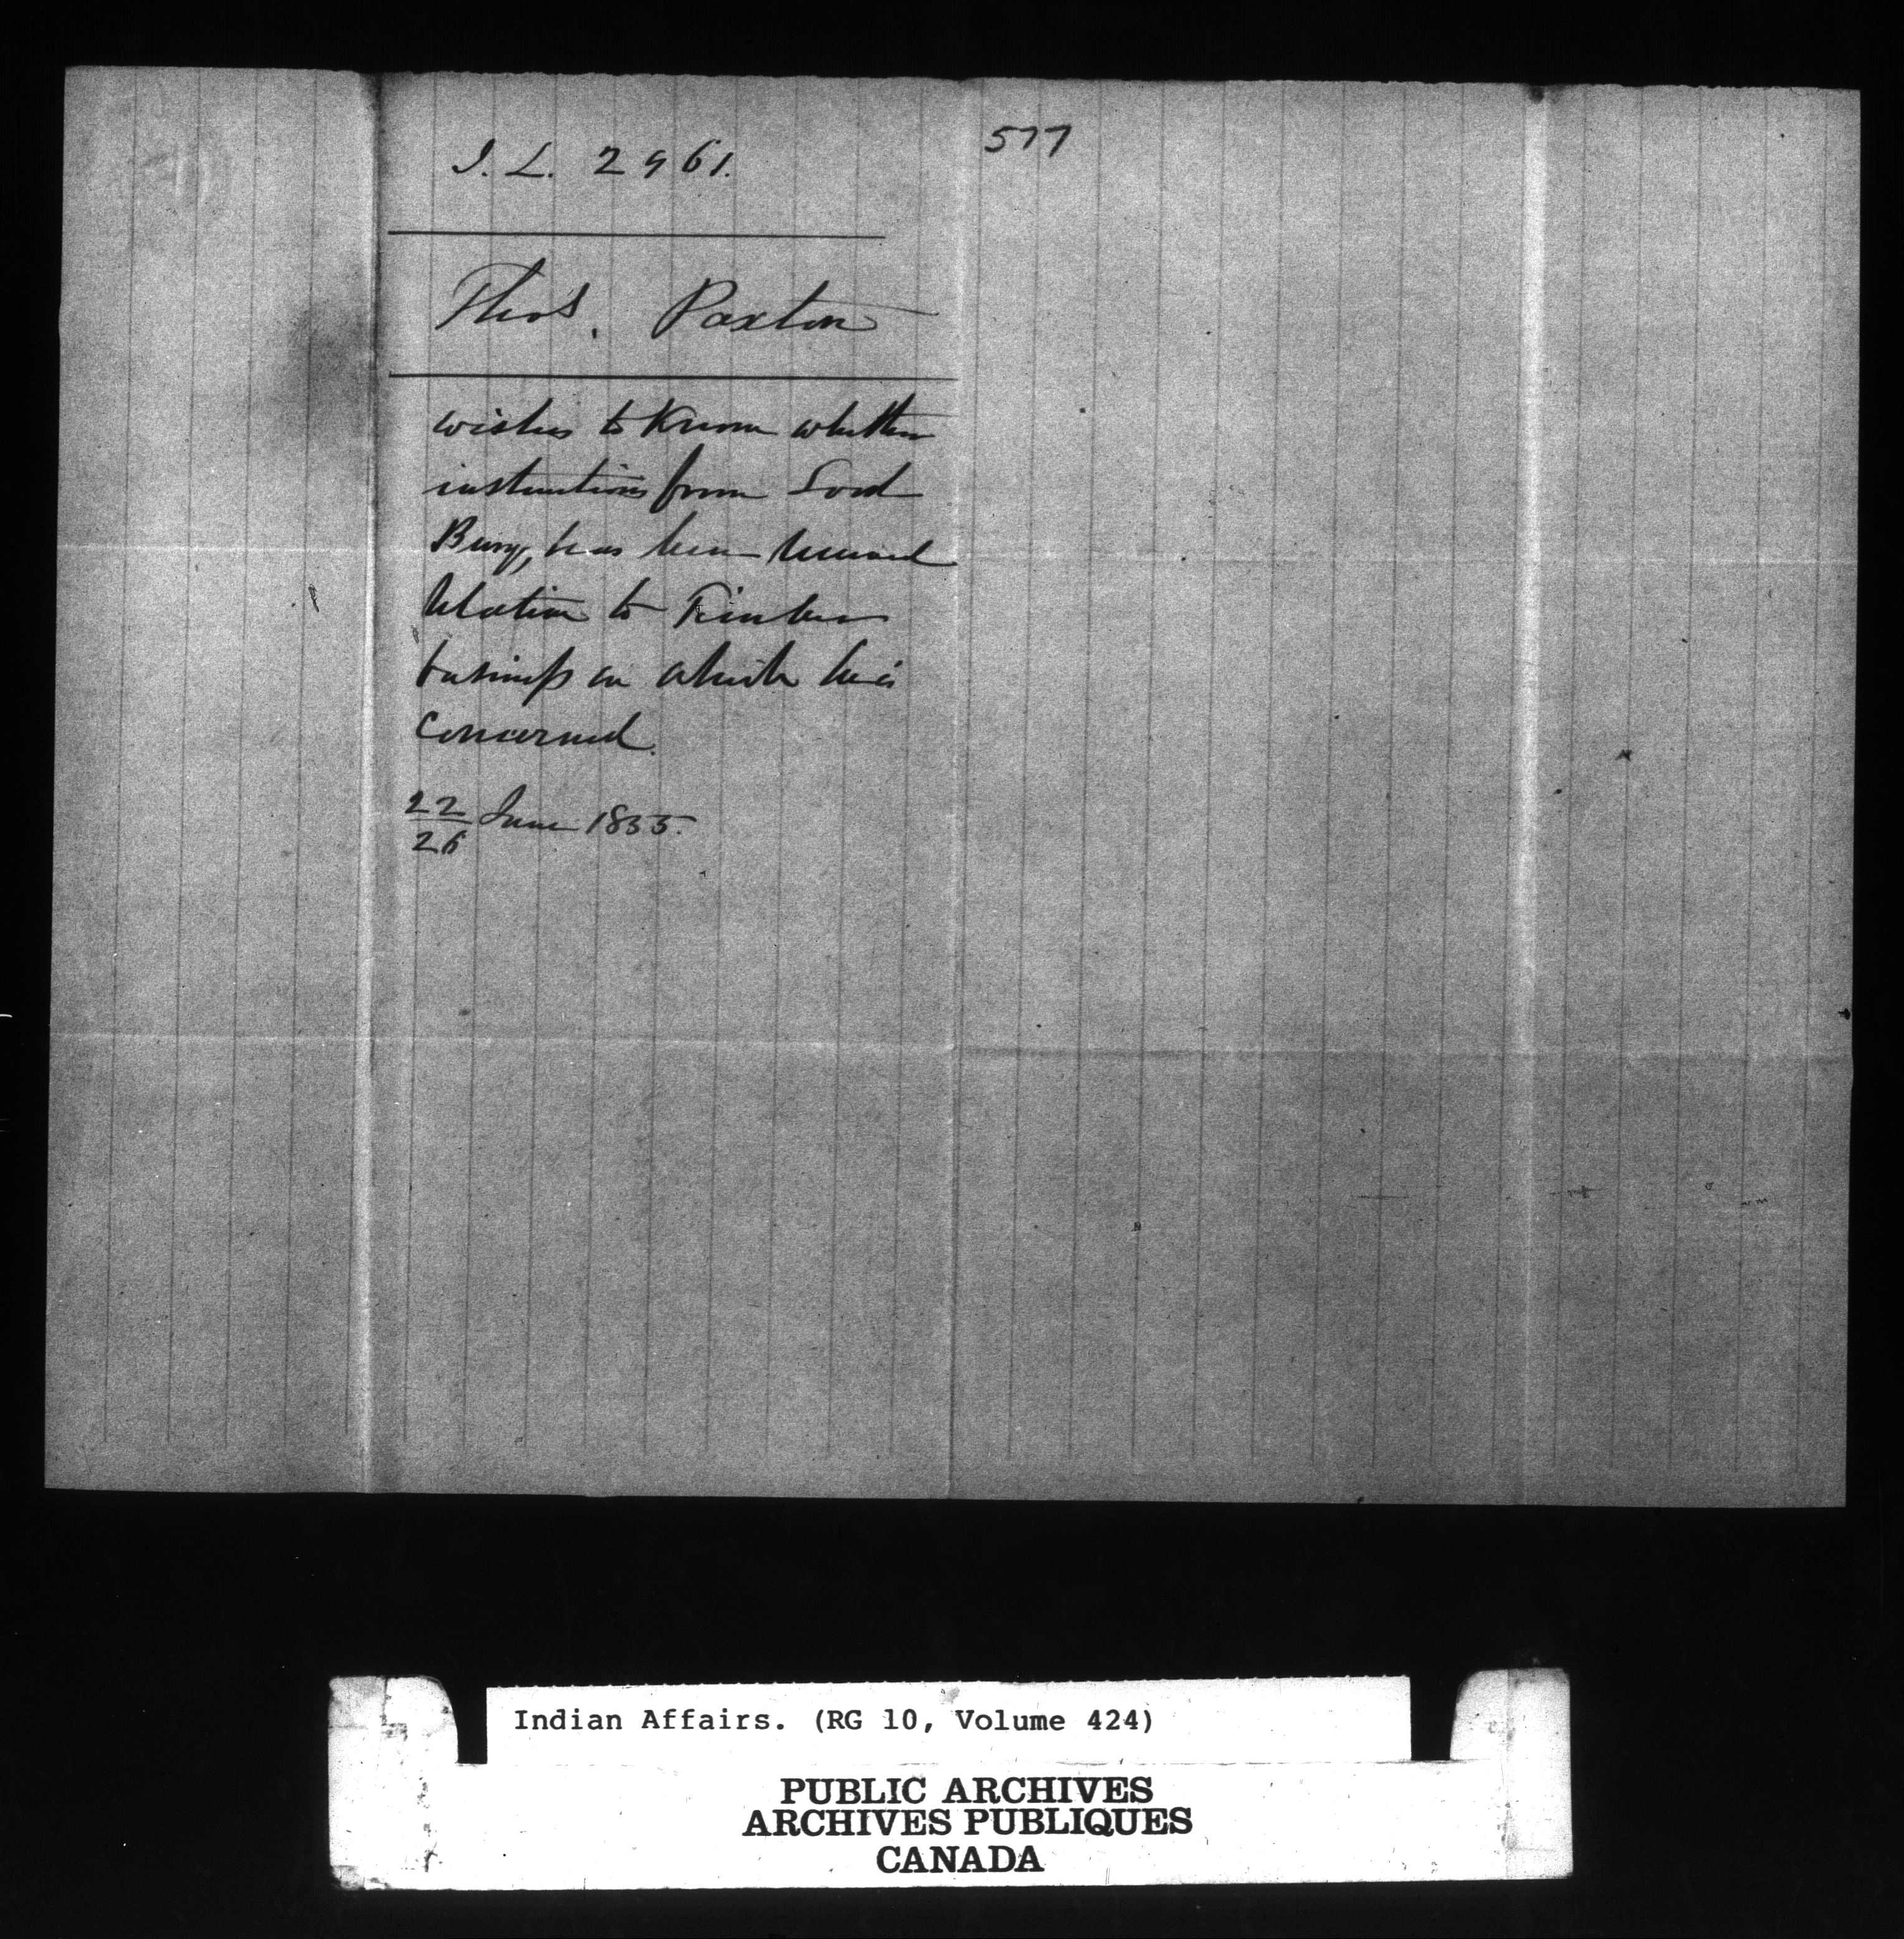 577
I. L. 2961.
Thos. Paxton
wishes to know whether
instructions from Lord
Bury, has been received
relative to Timber
business in which he is
concerned.
22 June 1855.
26
Indian Affairs. (RG 10, Volume 424)
PUBLIC ARCHIVES
ARCHIVES PUBLIQUES
CANADA